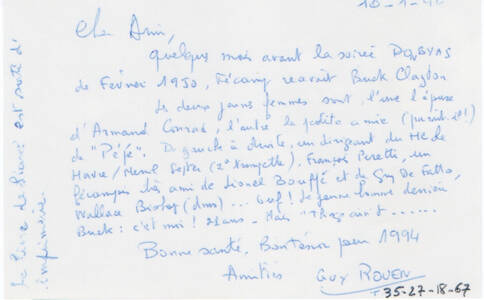 10-1-94
Cher Ami,
Quelques mois avant la soirée DON BYAS
de Février 1950, Fécamp recevait Buck Clayton
Les deux jeunes femmes sont, l'une l'épouse
d'Armand Conrad, l'autre la petite amie (paraît-il!)
de "Péfé". De gauche à droite, un dirigeant du HC de
Havre / Merril (2e trompette), François Peretti, un
fécampois très ami de Lionel Bouffé et de Guy De Fatto,
Wallace Bishop (dms)... Ouf! Le jeune homme derrière
Buck: c'est moi! 21 ans - Mais "Things ain't ......
Bonne santé, Bon tésor pour 1994
Amitiés GUY ROUEN
35-27-18-67
Le livre de Pierre est sorti d'
imprimerie.